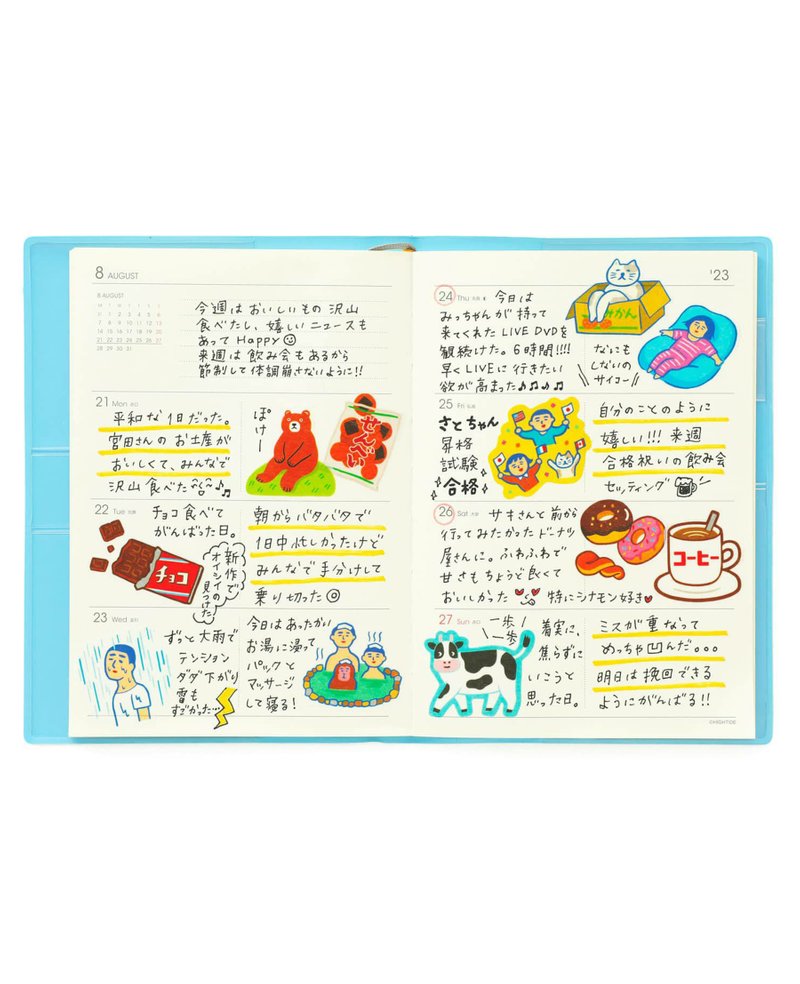 8 AUGUST
8 AUGUST
M T W T F S S
1 2 3 4 5 6
7 8 9 10 11 12 13
14 15 16 17 18 19 20
21 22 23 24 25 26 27
28 29 30 31
今週はおいしいもの沢山
食べたし、嬉しいニュースも
あってHappy
来週は飲み会もあるから
節制して体調崩さないように!!
21 Mon
平和な1日だった。
宮田さんのお土産が
おいしくて、みんなで
沢山食べた♪
ぽけー
せんべい
22 Tue
チョコ食べて
がんばった日。
チョコ
新作で
オイシイの
見つけた
朝からバタバタで
1日中忙しかったけど
みんなで手分けして
乗り切った◎
23 Wed
ずっと大雨で
テンション
ダダ下がり
雷も
すごかった…
今日はあったかい
お湯に浸って
パックと
マッサージ
して寝る!
'23
24 Thu
今日は
みっちゃんが持って
来てくれたLIVE DVDを
観続けた。6時間!!!!
早くLIVEに行きたい
欲が高まった♪♪♪♪
みかん
なにも
しないの
サイコー
25 Fri
さとちゃん
昇格
試験
合格
自分のことのように
嬉しい!!! 来週
合格祝いの飲み会
セッティング
26 Sat
サキさんと前から
行ってみたかったドーナツ
屋さんに。ふわふわで
甘さもちょうど良くて
おいしかった 特にシナモン好き
コーヒー
27 Sun
一歩
一歩
着実に、
焦らずに
いこうと
思った日。
ミスが重なって
めっちゃ凹んだ。。。
明日は挽回できる
ようにがんばる!!
©HIGHTIDE